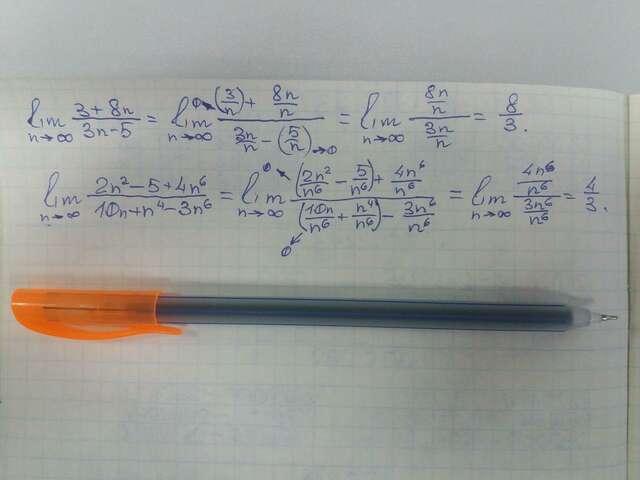 lim n→∞ (3+8n)/(3n-5) = lim n→∞ ((3/n)→0 + 8n/n)/(3n/n - (5/n)→0) = lim n→∞ (8n/n)/(3n/n) = 8/3.
lim n→∞ (2n²-5+4n⁶)/(10n+n⁴-3n⁶) = lim n→∞ ((2n²/n⁶ - 5/n⁶)→0 + 4n⁶/n⁶)/((10n/n⁶ + n⁴/n⁶)→0 - 3n⁶/n⁶) = lim n→∞ (4n⁶/n⁶)/(3n⁶/n⁶) = 4/3.